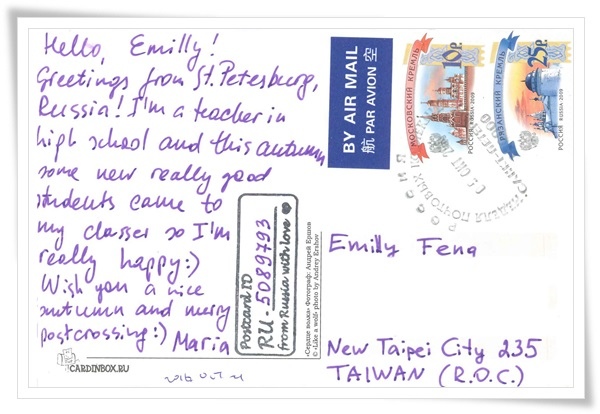 Hello, Emilly!
Greetings from St. Petesburg,
Russia! I'm a teacher in
high school and this autumn
some new really good
students came to
my classes so I'm
really happy:)
Wish you a nice
autumn and merry
postcrossing:) Maria
CARDINBOX.RU
Postcard ID
RU-5089793
from Russia with love
«Сердце волка» Фотограф: Андрей Ершов
© «Like a wolf» photo by Andrey Ershov
BY AIR MAIL
航 PAR AVION 空
МОСКОВСКИЙ КРЕМЛЬ
10р.
РОССИЯ RUSSIA 2009
РЯЗАНСКИЙ КРЕМЛЬ
25р.
РОССИЯ RUSSIA 2009
Emilly Feng
New Taipei City 235
TAIWAN (R.O.C.)